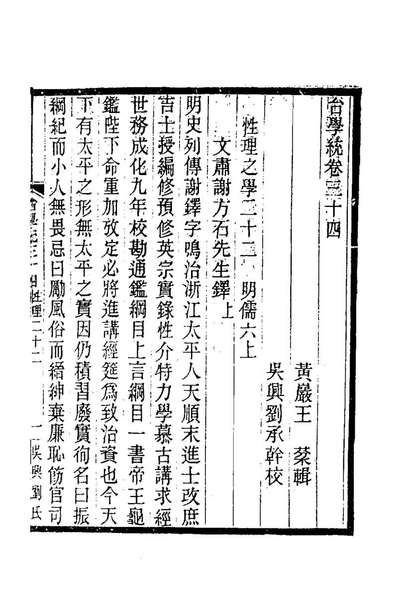 台學統卷三十四
黃巖王　棻輯
吳興劉承幹校
性理之學二十二　明儒六上
文肅謝方石先生鐸上
明史列傳謝鐸字鳴治浙江太平人天順末進士改庶
吉士授編修預修英宗實錄性介特力學慕古講求經
世務成化九年校勘通鑑綱目上言綱目一書帝王龜
鑑陛下命重加攷定必將進講經筵為致治資也今天
下有太平之形無太平之實因仍積習廢實徇名曰振
綱紀而小人無畏忌曰勵風俗而縉紳棄廉恥飭官司
台學統卷三十四　性理二十二　一　吳興劉氏